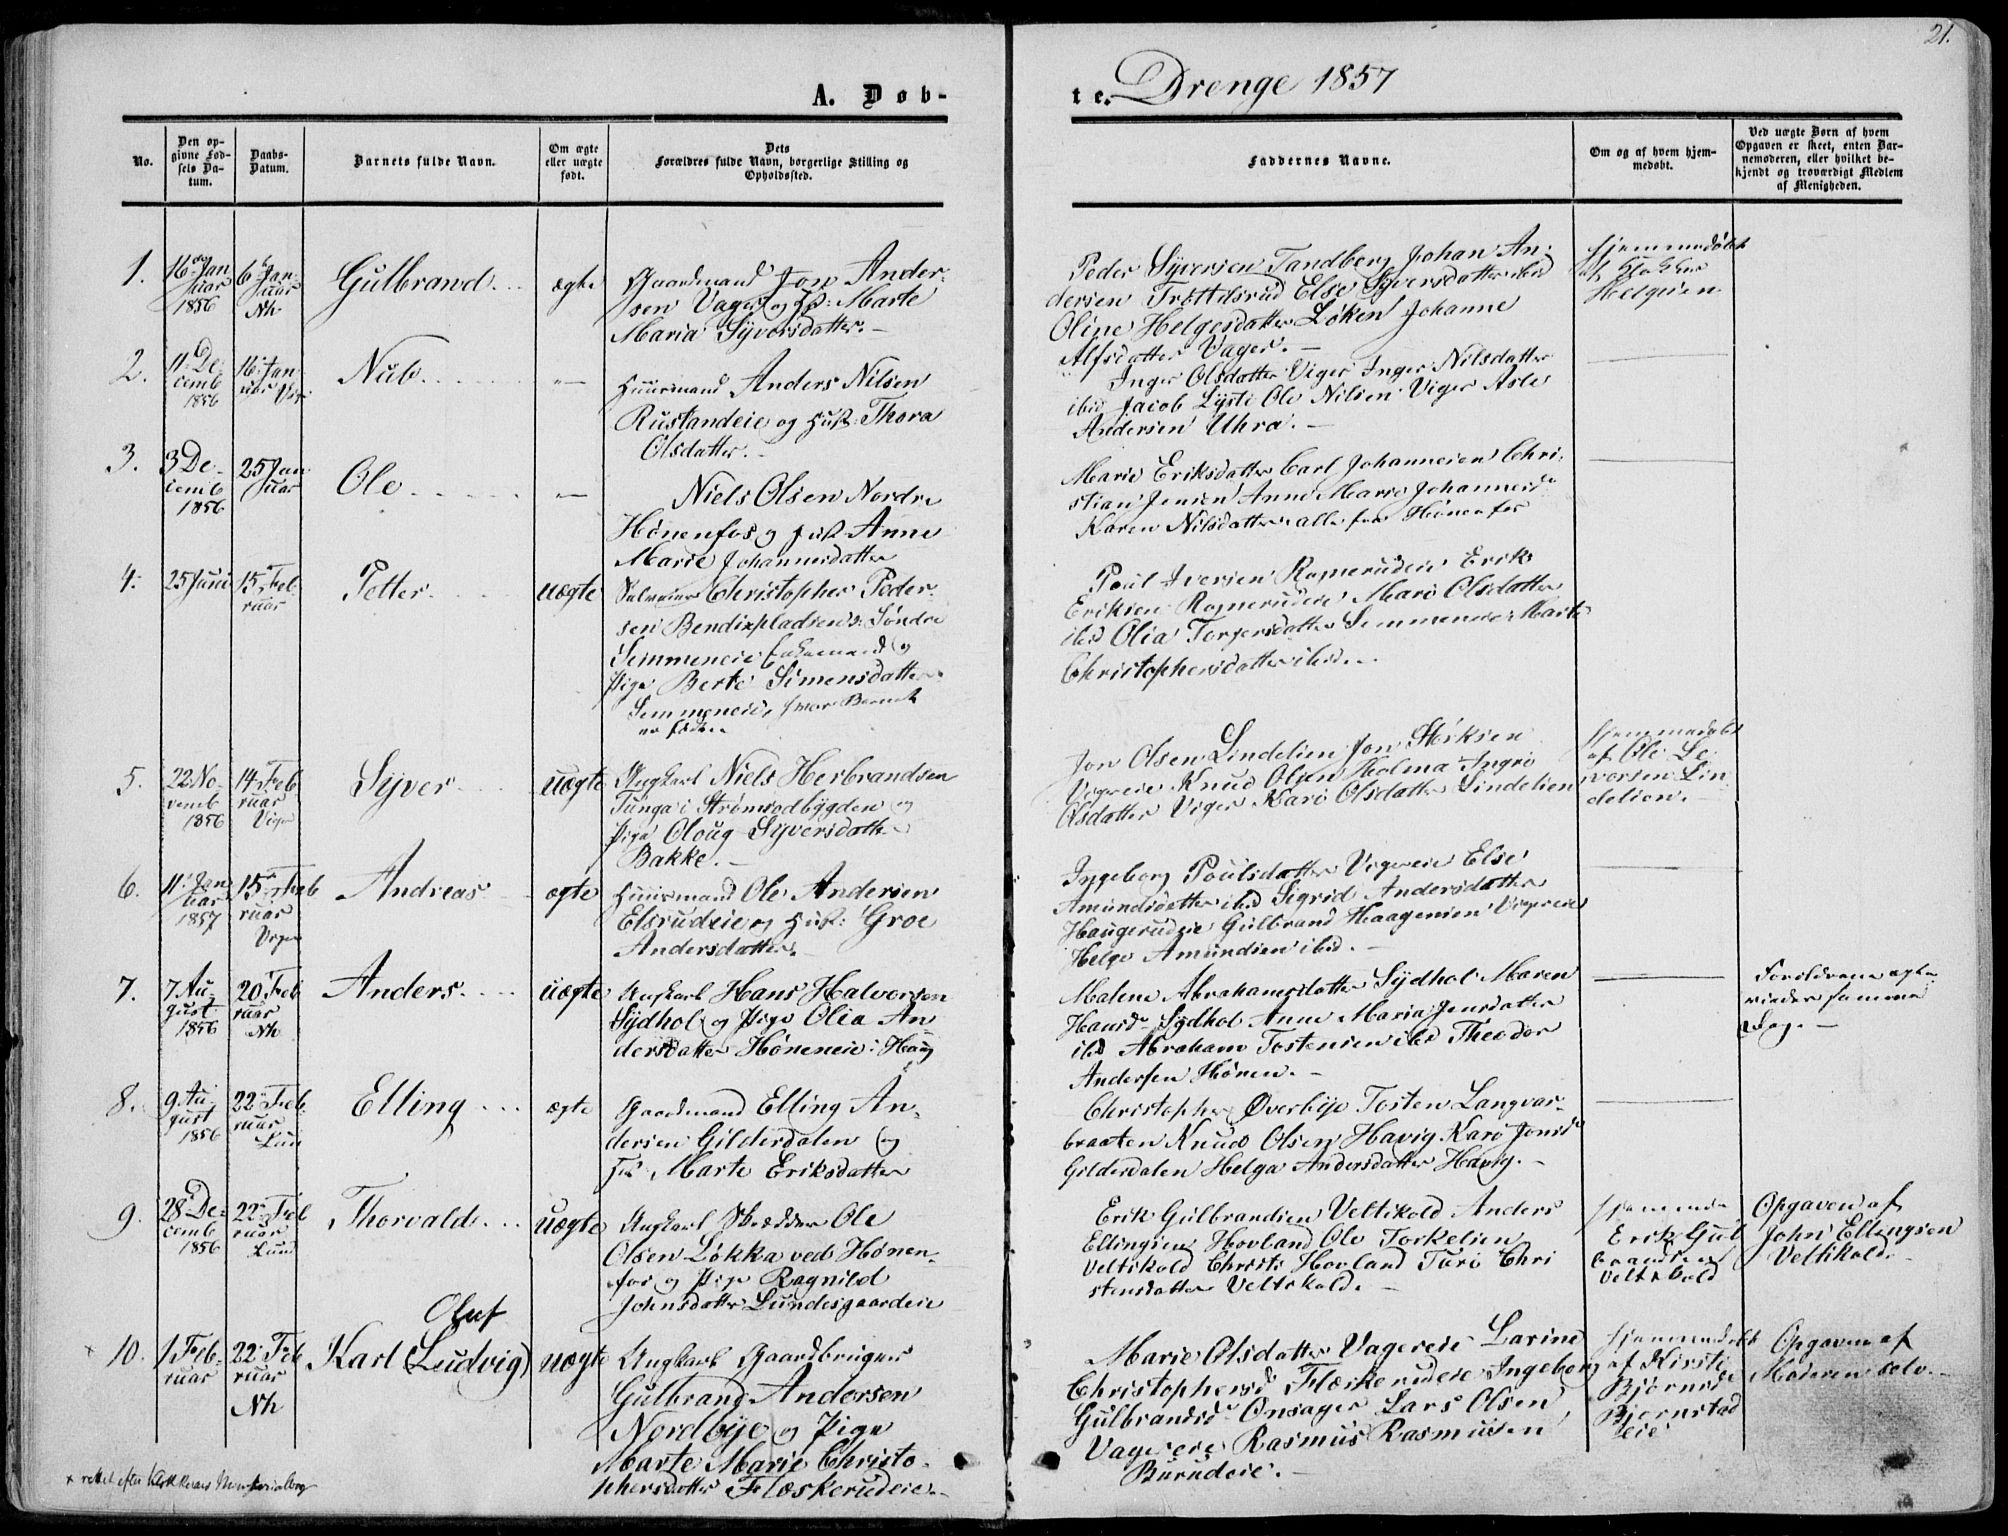 21.
A. Døb-
te. Drenge 1857
No.
Den op-
givne Fød-
sels Da-
tum.
Daabs-
Datum.
Barnets fulde Navn.
Om ægte
eller uægte
født.
Dets
Forældres fulde Navn, borgerlige Stilling og
Opholdssted.
Faddernes Navne.
Om og af hvem hjem-
medøbt.
Ved uægte Børn af hvem
Opgaven er skeet, enten Bar-
nemoderen, eller hvilket be-
kjendt og troværdigt Medlem
af Menigheden.
1.
16 Jan
uar
1856
6 Jan
uar
Nh
Gulbrand
ægte
Gaardmand Jon Ander-
sen Vager og Hs: Marte
Maria Syversdatter.-
Peder Syversen Tandberg Johan An-
dersen Trøttilsrud Else Syversdatter ibid
Oline Helgesdatter Løken Johanne
Alfsdatter Vager.-
Hjemmedøbt
af Klokker
Helgesen
2.
11 De-
cemb
1856
16 Jan
uar
Nub
Huusmand Anders Nilsen
Rustandeie og Hust: Thora
Olsdatter.-
Inger Olsdatter Viger Inger Nilsdatter
ibid Jacob Lysti Ole Nilsen Viger Asle
Andersen Uhra.-
3.
3 De-
cemb
1856
25 Jan
uar
Ole
Niels Olsen Nordre
Hønenfos og Hust Anne
Marie Johannesdatter
Marie Eriksdatter Carl Johannesen Chri-
stian Jensen Anne Marie Johannesd
Karen Nilsdatter alle fra Hønenfos
4.
25 Juni
15 Feb-
ruar
Petter
uægte
Christopher Peder-
sen Bendixpladsen Søndre
Semmeneie og
Pige Berte Simensdatter
Semmeneie, hvor Barnet
er født
Poul Iversen Ragnerudeie Erik
Eriksen Ragnerudeie Mari Olsdatter
ibid Olia Torgersdatter Semmeneie Marte
Christophersdatter ibid.-
5.
22 No-
vemb
1856
14 Feb
ruar
Viger
Syver
uægte
Ungkarl Niels Herbrandsen
Tunga i Strømsodbygden og
Pige Oloug Syversdatter
Bakke.-
Jon Olsen Lindelien Jon Størksen
Vegereie Knud Olsen Holma Ingri
Olsdatter Viger Kari Olsdatter Lindelien
Hjemmedøbt
af Ole Se-
versen Lin
delien.-
6.
11 Jan
uar
1857
15 Feb
ruar
Viger
Andreas
ægte
Huusmand Ole Andersen
Elsrudeie og Hust: Groe
Andersdatter.
Ingeborg Poulsdatter Vegereie Else
Amundsdatter ibid Sigrid Andersdatter
Haugerudeie Gulbrand Haagensen Vegereie
Helge Amundsen ibid.-
7.
7 Au-
gust
1856
20 Feb
ruar
Nh
Anders
uægte
Ungkarl Hans Halvorsen
Sydhol og Pige Olia An
dersdatter Høneneie i Haug
Malene Abrahamsdatter Sydhol Maren
Hansd Sydhol Anne Maria Jensdatter
ibid Abraham Tostensen ibid Theodor
Andersen Hønen.-
Forældrene ægte-
viedes samme
Dag.-
8.
9 Au-
gust
1856
22 Feb
ruar
Lun
Elling
ægte
Gaardmand Elling An-
dersen Gilderdalen og
Hs: Marte Eriksdatter
Christopher Øverbye Tosten Langvar-
braaten Knud Olsen Havig Kari Jonsd
Gilderdalen Helga Andersdatter Havig.-
9.
28 De-
cemb
1856
22 Feb
ruar
Lund
Thorvald
uægte
Ungkarl Skrædder Ole
Olsen Løkka ved Hønen-
fos og Pige Ragnild
Johnsdatter Lundesgaardeie
Erik Gulbrandsen Veltikold Anders
Ellingsen Hovland Ole Torkelsen
Veltikold Christi Hovland Turi Chri
stensdatter Veltikold.-
Hjemmed
Erik Gul
brandsen
Veltikold
Opgaven af
John Ellingsen
Veltikold.-
x 10.
1 Feb-
ruar
22 Feb
ruar
Nh
Oluf
Karl (Ludvig)
uægte
Ungkarl Gaardbruger
Gulbrand Andersen
Nordbye og Pige
Marte Marie Christo-
phersdatter Flæskerudeie.-
Marie Olsdatter Vagereie Larine
Christophersd Flæskerudeie Ingeborg
Gulbrandsd Onsager Lars Olsen
Vagereie Rasmus Rasmusen
Burudeie.-
Hjemmedøbt
af Kirsti
Bjørnsd
Bjørnstad
eie
Opgaven af
Moderen selv.-
x rettet efter Klokkerens Ministerialbog